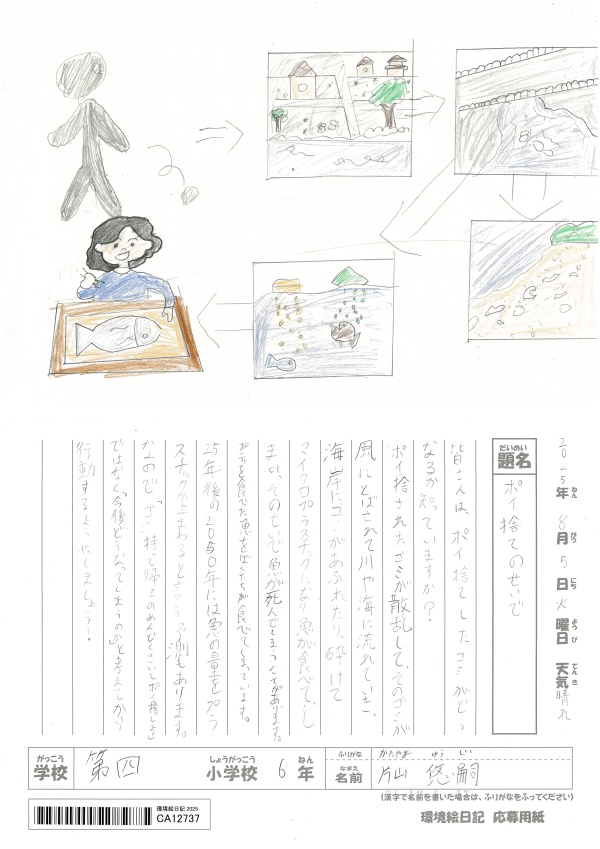 2025年ねん 8月がつ 5日にち 火曜日ようび 天気てんき 晴れ
題名だいめい ポイ捨てのせいで
皆さんは、ポイ捨てしたゴミがどう
なるか知っていますか?
ポイ捨てされたゴミが散乱して、そのゴミが
風にとばされて川や海に流れていき、
海岸にゴミがあふれたり、砕けて
マイクロプラスチックになり魚が食べてし
まい、そのせいで魚が死んでしまうことがあります。
プラを食べた魚をぼくたちが食べてしまっています。
25年後の2050年には魚の量をプラ
スチックが上まわると言う予測もあります。
なので「ゴミ持って帰るのめんどくさいしポイ捨てしよ」
ではなく「今後どうなってしまうのか」と考えてから
行動するようにしましょう!
がっこう 学校 第四 しょうがっこう 小学校 6 ねん 年 ふりがな かたやま ゆうじ
なまえ 名前 片山 悠嗣
(漢字で名前を書いた場合は、ふりがなをふってください)
環境絵日記 2025
CA12737
環境絵日記 応募用紙